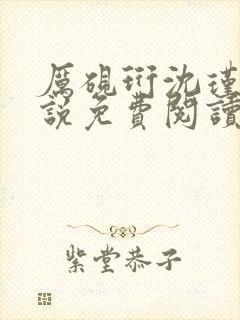 厲硯珩沈瑾
說免費閱讀
紫堂恭子